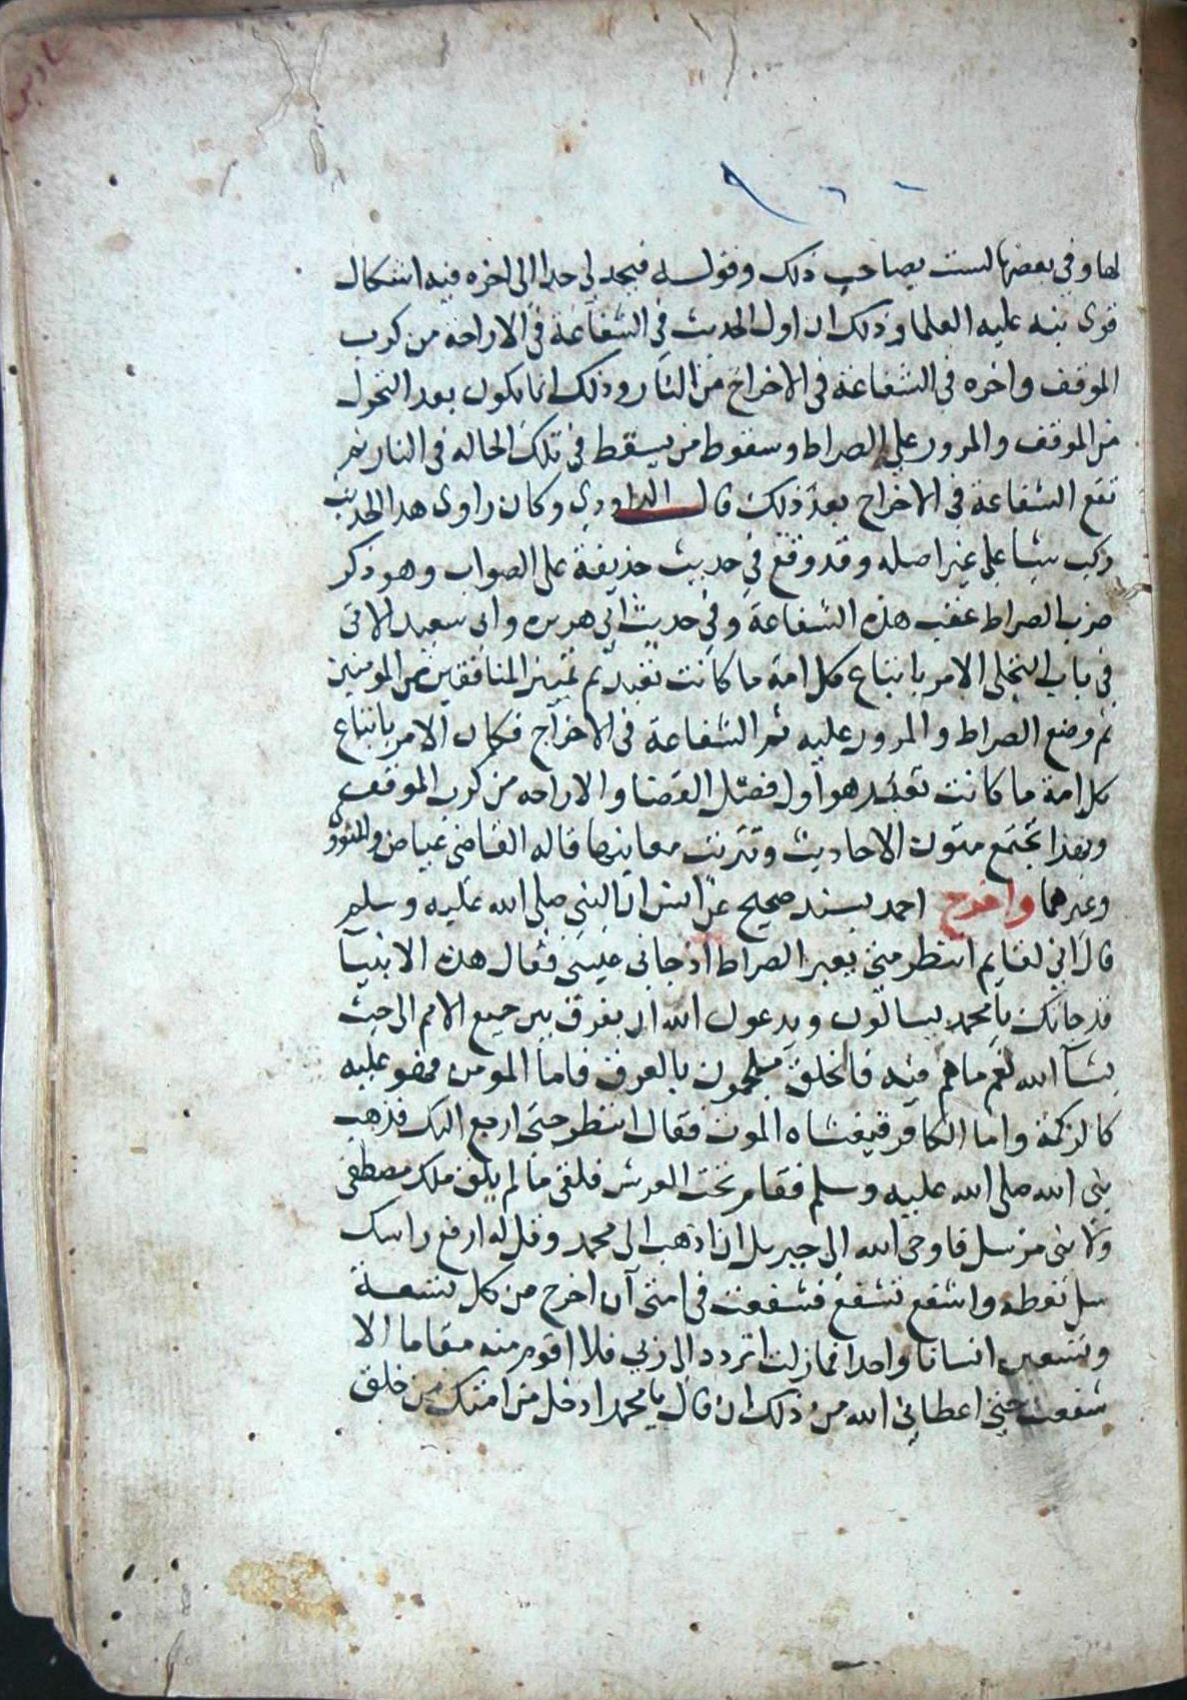 لها وفي بعضها لست بصاحب ذلك وقوله فيحد لي حدا الى اخره فيه اشكال
قوى نبه عليه العلما وذلك ان اول الحديث في الشفاعة في الاراحة من كرب
الموقف واخره في الشفاعة في الاخراج من النار وذلك انما يكون بعد التحول
من الموقف والمرور على الصراط وسقوط من يسقط في تلك الحاله في النار ثم
تقع الشفاعة في الاخراج بعد ذلك قال الداودي وكان راوى هذا الحديث
ركب شيا على غير اصله وقد وقع في حديث حذيفة على الصواب وهو ذكر
ضرب الصراط عقب هذه الشفاعة وفي حديث ابي هريره وابى سعيد الاتى
في باب التجلى الامر باتباع كل امة ما كانت تعبد ثم تميز المنافقين من المومنين
ثم وضع الصراط والمرور عليه ثم الشفاعة في الاخراج فكان الامر باتباع
كل امة ما كانت تعبد هو اول فصل القضا والاراحه من كرب الموقف
وبهذا تجتمع متون الاحاديث وتترتب معانيها قاله القاضي عياض والنووى
وغيرهما واخرج احمد بسند صحيح عن انس ان النبي صلى الله عليه وسلم
قال اني لقايم انتظر متى يعبر الصراط اذ جاني عيسى فقال هذه الانبيا
قد جاتك يا محمد يسالون ويدعون الله ان يفرق بين جميع الامم الى حيث
يشآ الله لغم ما هم فيه فالخلق ملجمون بالعرق فاما المومن فهو عليه
كالزكمة واما الكافر فيغشاه الموت فقال انتظر حتى ارجع اليك فذهب
نبي الله صلى الله عليه وسلم فقام تحت العرش فلقى ما لم يلق ملك مصطفى
ولا نبي مرسل فاوحى الله الى جبريل ان اذهب الى محمد وقل له ارفع راسك
سل تعطه واشفع تشفع فشفعت في امتى ان اخرج من كل تسعة
وتسعين انسانا واحدا فما زلت اتردد الى ربي فلا اقوم منه مقاما الا
شفعت حتى اعطاني الله من ذلك ان قال يا محمد ادخل من امتك من خلق